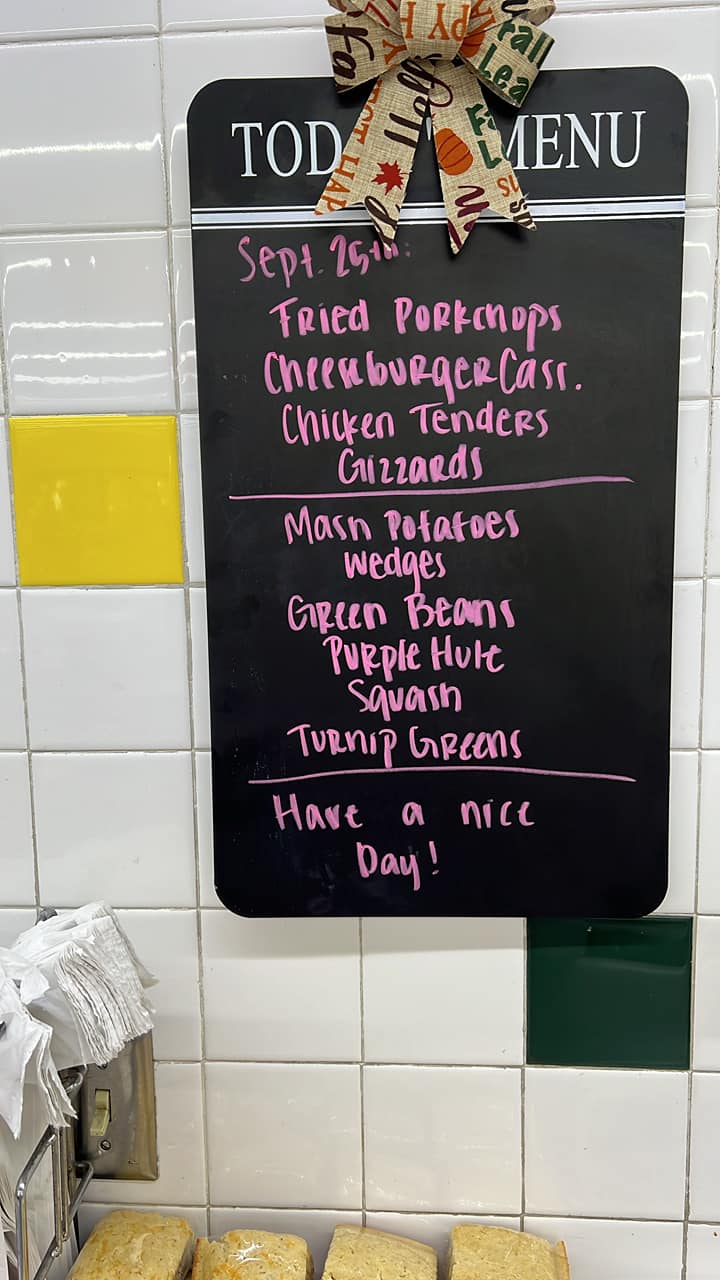 TOD MENU
Sept. 25th:
Fried Porkchops
Cheeseburger Cass.
Chicken Tenders
Gizzards
Mash Potatoes
Wedges
Green Beans
Purple Hull
Squash
Turnip Greens
Have a nice
Day!